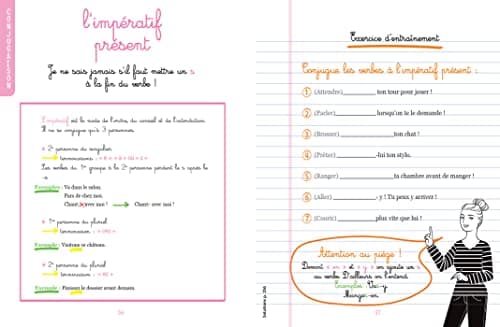 CONJUGAISON
l'impératif
présent
Je ne sais jamais s'il faut mettre un s
à la fin du verbe !
L'impératif est le mode de l'ordre, du conseil et de l'interdiction.
Il ne se conjugue qu'à 3 personnes.
2e personne du singulier
terminaisons :
Les verbes du 1er groupe à la 2e personne perdent le s après le
Exemples : Va dans le salon.
Pars de chez moi.
Chantes avec moi ! Chante avec moi !
1re personne du pluriel
terminaison : « ons »
Exemple : Visitons ce château.
2e personne du pluriel
terminaison : « ez »
Exemple : Finissez le dossier avant demain.
56
Exercice d'entraînement
Conjugue les verbes à l'impératif présent :
1 (Attendre) ton tour pour jouer !
2 (Parler) lorsqu'on te le demande !
3 (Brosser) ton chat !
4 (Prêter) -lui ton stylo.
5 (Ranger) ta chambre avant de manger !
6 (Aller) - y ! Tu peux y arriver !
7 (Courir) plus vite que lui !
Attention au piège !
Devant « en » et « y » on ajoute un s
au verbe. D'ailleurs on l'entend.
Exemples : Vas-y.
Manges-en.
Solutions p. 256
57